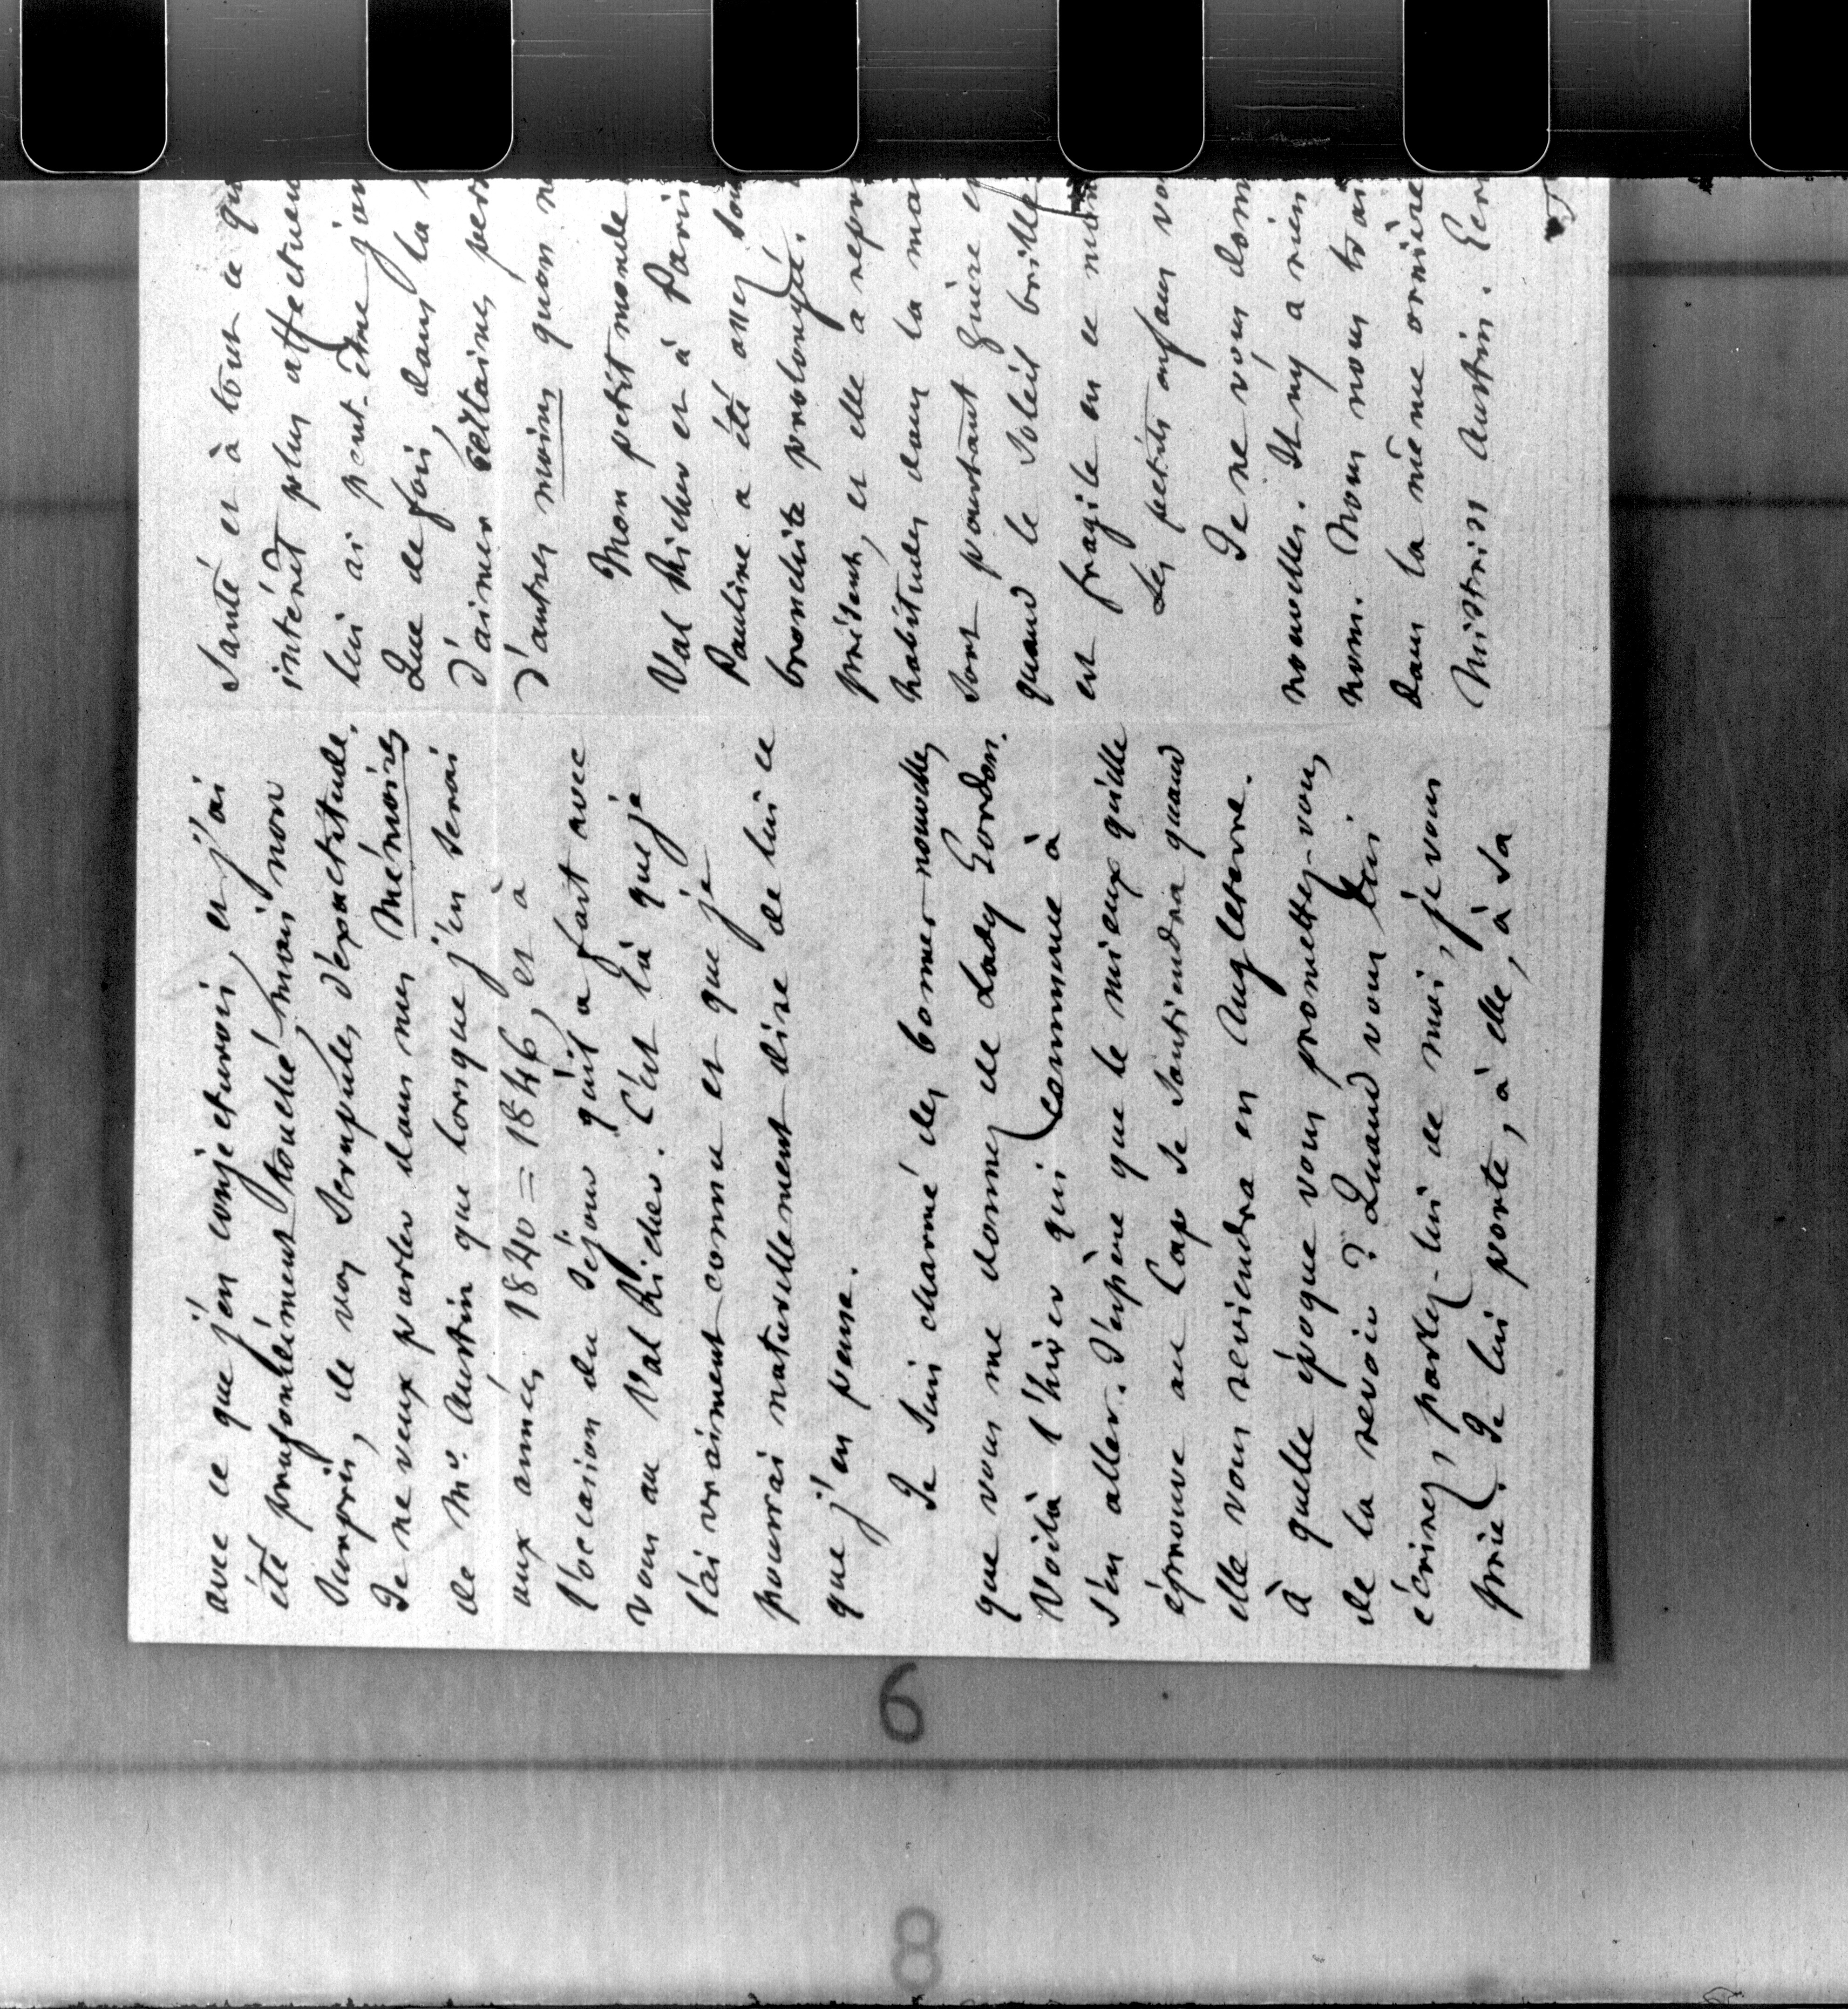 avec ce que j'en conjecturois, et j'ai
été profondément touché, mais non
surpris, de vos scrupules d'exactitude.
Je ne veux parler dans mes Mémoires
de Mr. Austin que lorsque j'en serai
aux années 1840=1846, et à
l'occasion du séjour qu'il a fait avec
vous au Val Richer. C'est là que je
l'ai vraiment connu et que je
pourrai naturellement dire de lui ce
que j'en pense.
Je suis charmé des bonnes nouvelles
que vous me donnez de Lady Gordon.
Voilà l'hiver qui commence à
s'en aller. J'espère que le mieux qu'elle
éprouve au Cap se soutiendra quand
elle vous reviendra en Angleterre.
à quelle époque vous promettez-vous
de la revoir ? Quand vous lui
écrirez, parlez-lui de moi, je vous
prie. Je lui porte, à elle, à sa
santé et à tout ce qu
intérêt plus affectueu
lui ai peut-être jam
Que de fois, dans la
d'aimer certaines pers
d'autres moins qu'on n
Mon petit monde
Val Richer et à Paris
Pauline a été assez sou
bronchite prolongée.
présent, et elle a repr
habitudes dans la mai
sont pourtant guère
quand le soleil brille
est fragile en ce mon
Les petits enfans vo
Je ne vous donn
nouvelles. Il n'y a rien
nom. Nous nous traî
dans la même ornière
Mistriss Austin. Ecri
6
8